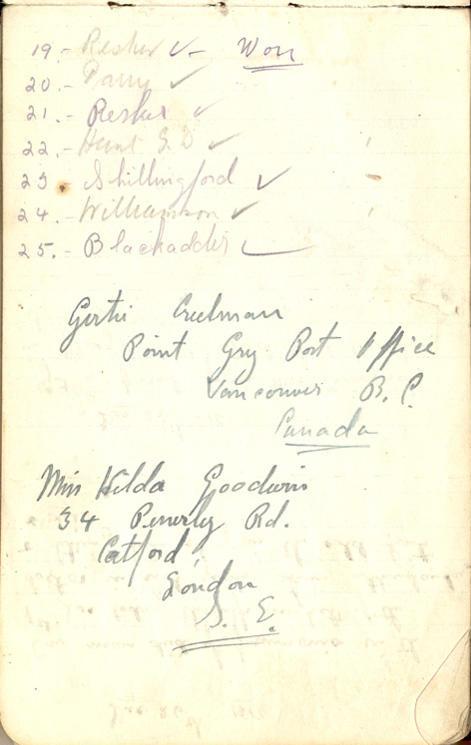 19.- Resker ✓ - Won
20.- Parry ✓
21.- Resker ✓
22.- Hunt G.D ✓
23 Shillingford ✓
24.- Williamson ✓
25.- Blackadder ✓
Gertie Creelman
Point Grey Post Office
Vancouver B.C.
Canada
Miss Hilda Goodwin
34 Penerly Rd.
Catford
London
S.E.